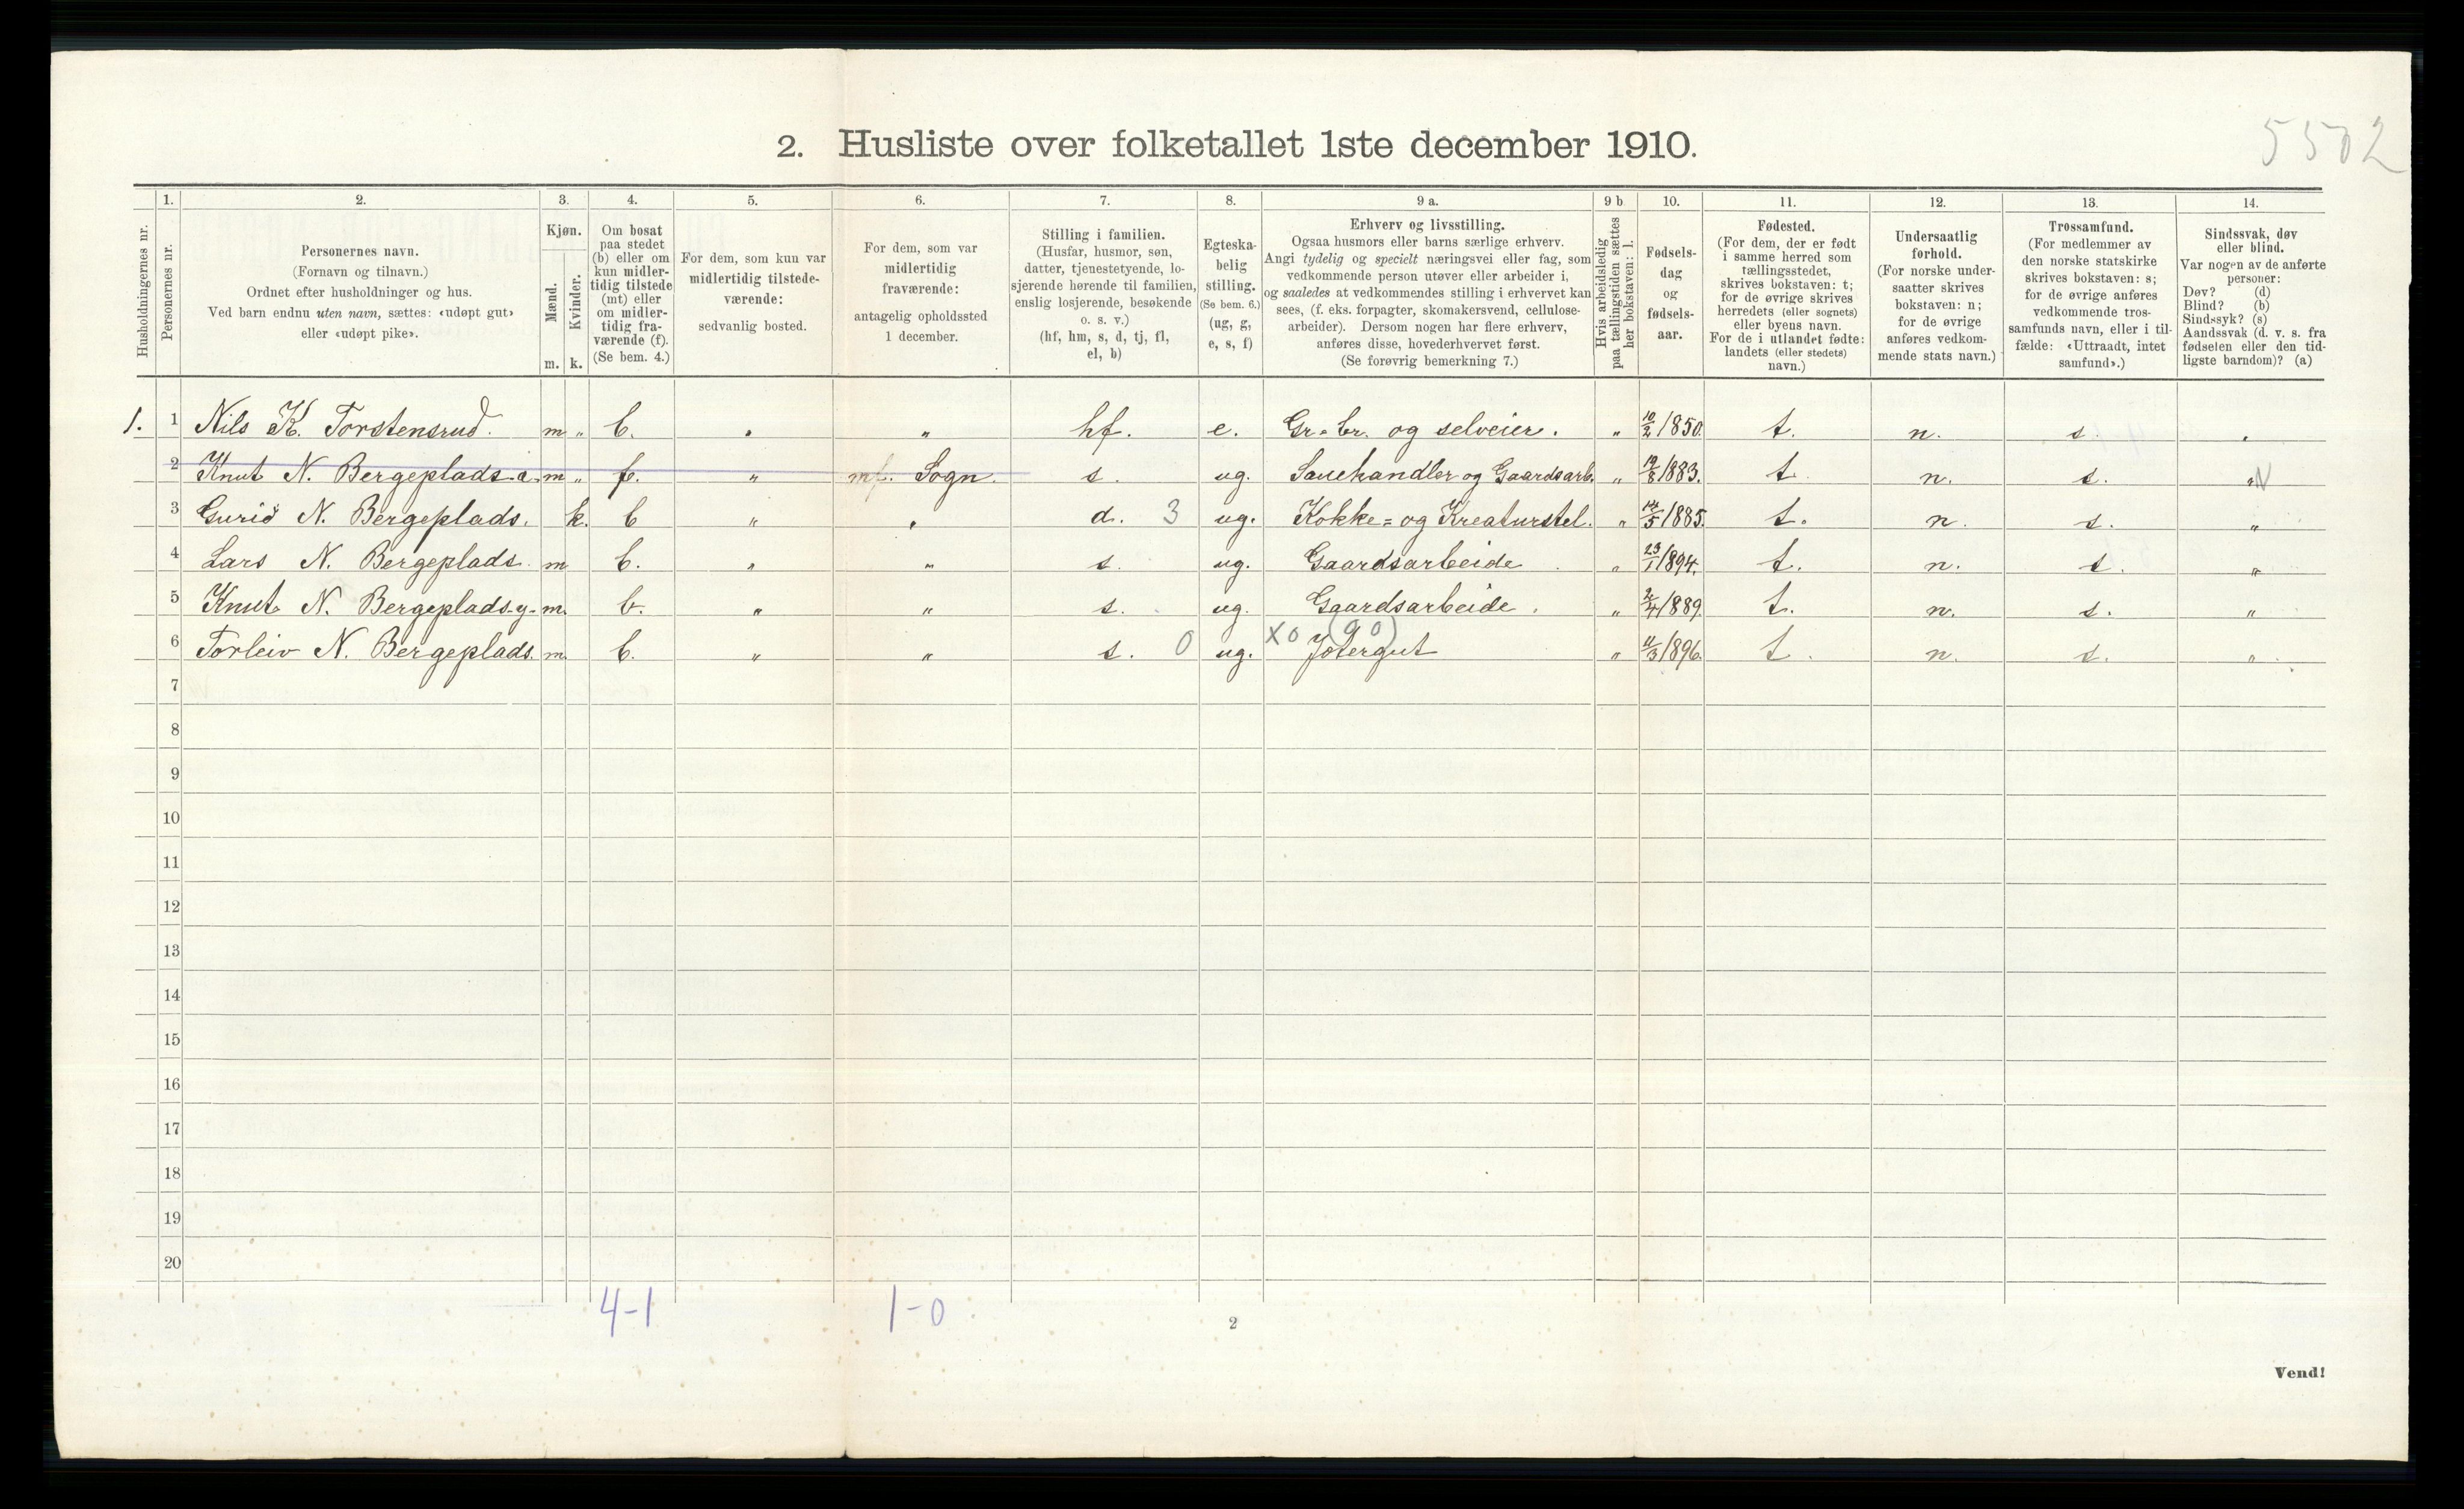 5502
2. Husliste over folketallet 1ste december 1910.
Husholdningernes nr.
1.
Personernes nr.
2.
Personernes navn.
(Fornavn og tilnavn.)
Ordnet efter husholdninger og hus.
Ved barn endnu uten navn, sættes: «udøpt gut»
eller «udøpt pike».
3.
Kjøn.
Mænd.
Kvinder.
m. k.
4.
Om bosat
paa stedet
(b) eller om
kun midler-
tidig tilstede
(mt) eller
om midler-
tidig fra-
værende (f).
(Se bem. 4.)
5.
For dem, som kun var
midlertidig tilstede-
værende:
sedvanlig bosted.
6.
For dem, som var
midlertidig
fraværende:
antagelig opholdssted
1 december.
7.
Stilling i familien.
(Husfar, husmor, søn,
datter, tjenestetyende, lo-
sjerende hørende til familien,
enslig losjerende, besøkende
o. s. v.)
(hf, hm, s, d, tj, fl,
el, b)
8.
Egteska-
belig
stilling.
(Se bem. 6.)
(ug, g,
e, s, f)
9 a.
Erhverv og livsstilling.
Ogsaa husmors eller barns særlige erhverv.
Angi tydelig og specielt næringsvei eller fag, som
vedkommende person utøver eller arbeider i,
og saaledes at vedkommendes stilling i erhvervet kan
sees, (f. eks. forpagter, skomakersvend, cellulose-
arbeider). Dersom nogen har flere erhverv,
anføres disse, hovederhvervet først.
(Se forøvrig bemerkning 7.)
9 b
Hvis arbeidsledig
paa tællingstiden sættes
her bokstaven: l.
10.
Fødsels-
dag
og
fødsels-
aar.
11.
Fødested.
(For dem, der er født
i samme herred som
tællingsstedet,
skrives bokstaven: t;
for de øvrige skrives
herredets (eller sognets)
eller byens navn.
For de i utlandet fødte:
landets (eller stedets)
navn.)
12.
Undersaatlig
forhold.
(For norske under-
saatter skrives
bokstaven: n;
for de øvrige
anføres vedkom-
mende stats navn.)
13.
Trossamfund.
(For medlemmer av
den norske statskirke
skrives bokstaven: s;
for de øvrige anføres
vedkommende tros-
samfunds navn, eller i til-
fælde: «Uttraadt, intet
samfund».)
14.
Sindssvak, døv
eller blind.
Var nogen av de anførte
personer:
Døv? (d)
Blind? (b)
Sindssyk? (s)
Aandssvak (d. v. s. fra
fødselen eller den tid-
ligste barndom)? (a)
1. 1 Nils K. Torstensrud. m " b. " " hf. e. Gr.br. og selveier. " 10/2 1850. t. n. s. "
2 Knut N. Bergeplads.a. m " f. " mf. Sogn. s. ug. Sauehandler og Gaardsarb. " 19/8 1883. t. n. s. " N
3 Gurid N. Bergeplads. k. b " " d. 3 ug. Kokke= og Kreaturstel. " 14/5 1885. t. n. s. "
4 Lars N. Bergeplads. m b. " " s. ug. Gaardsarbeide " 23/1 1894. t. n. s. "
5 Knut N. Bergeplads.y. m. b. " " s. ug. Gaardsarbeide. " 2/4 1889. t. n. s. "
6 Torleiv N. Bergeplads. m. b. " " s. 0 ug. X0 (90) Jotergut " 11/3 1896. t. n. s. "
7
8
9
10
11
12
13
14
15
16
17
18
19
20
4-1 1-0
2
Vend!